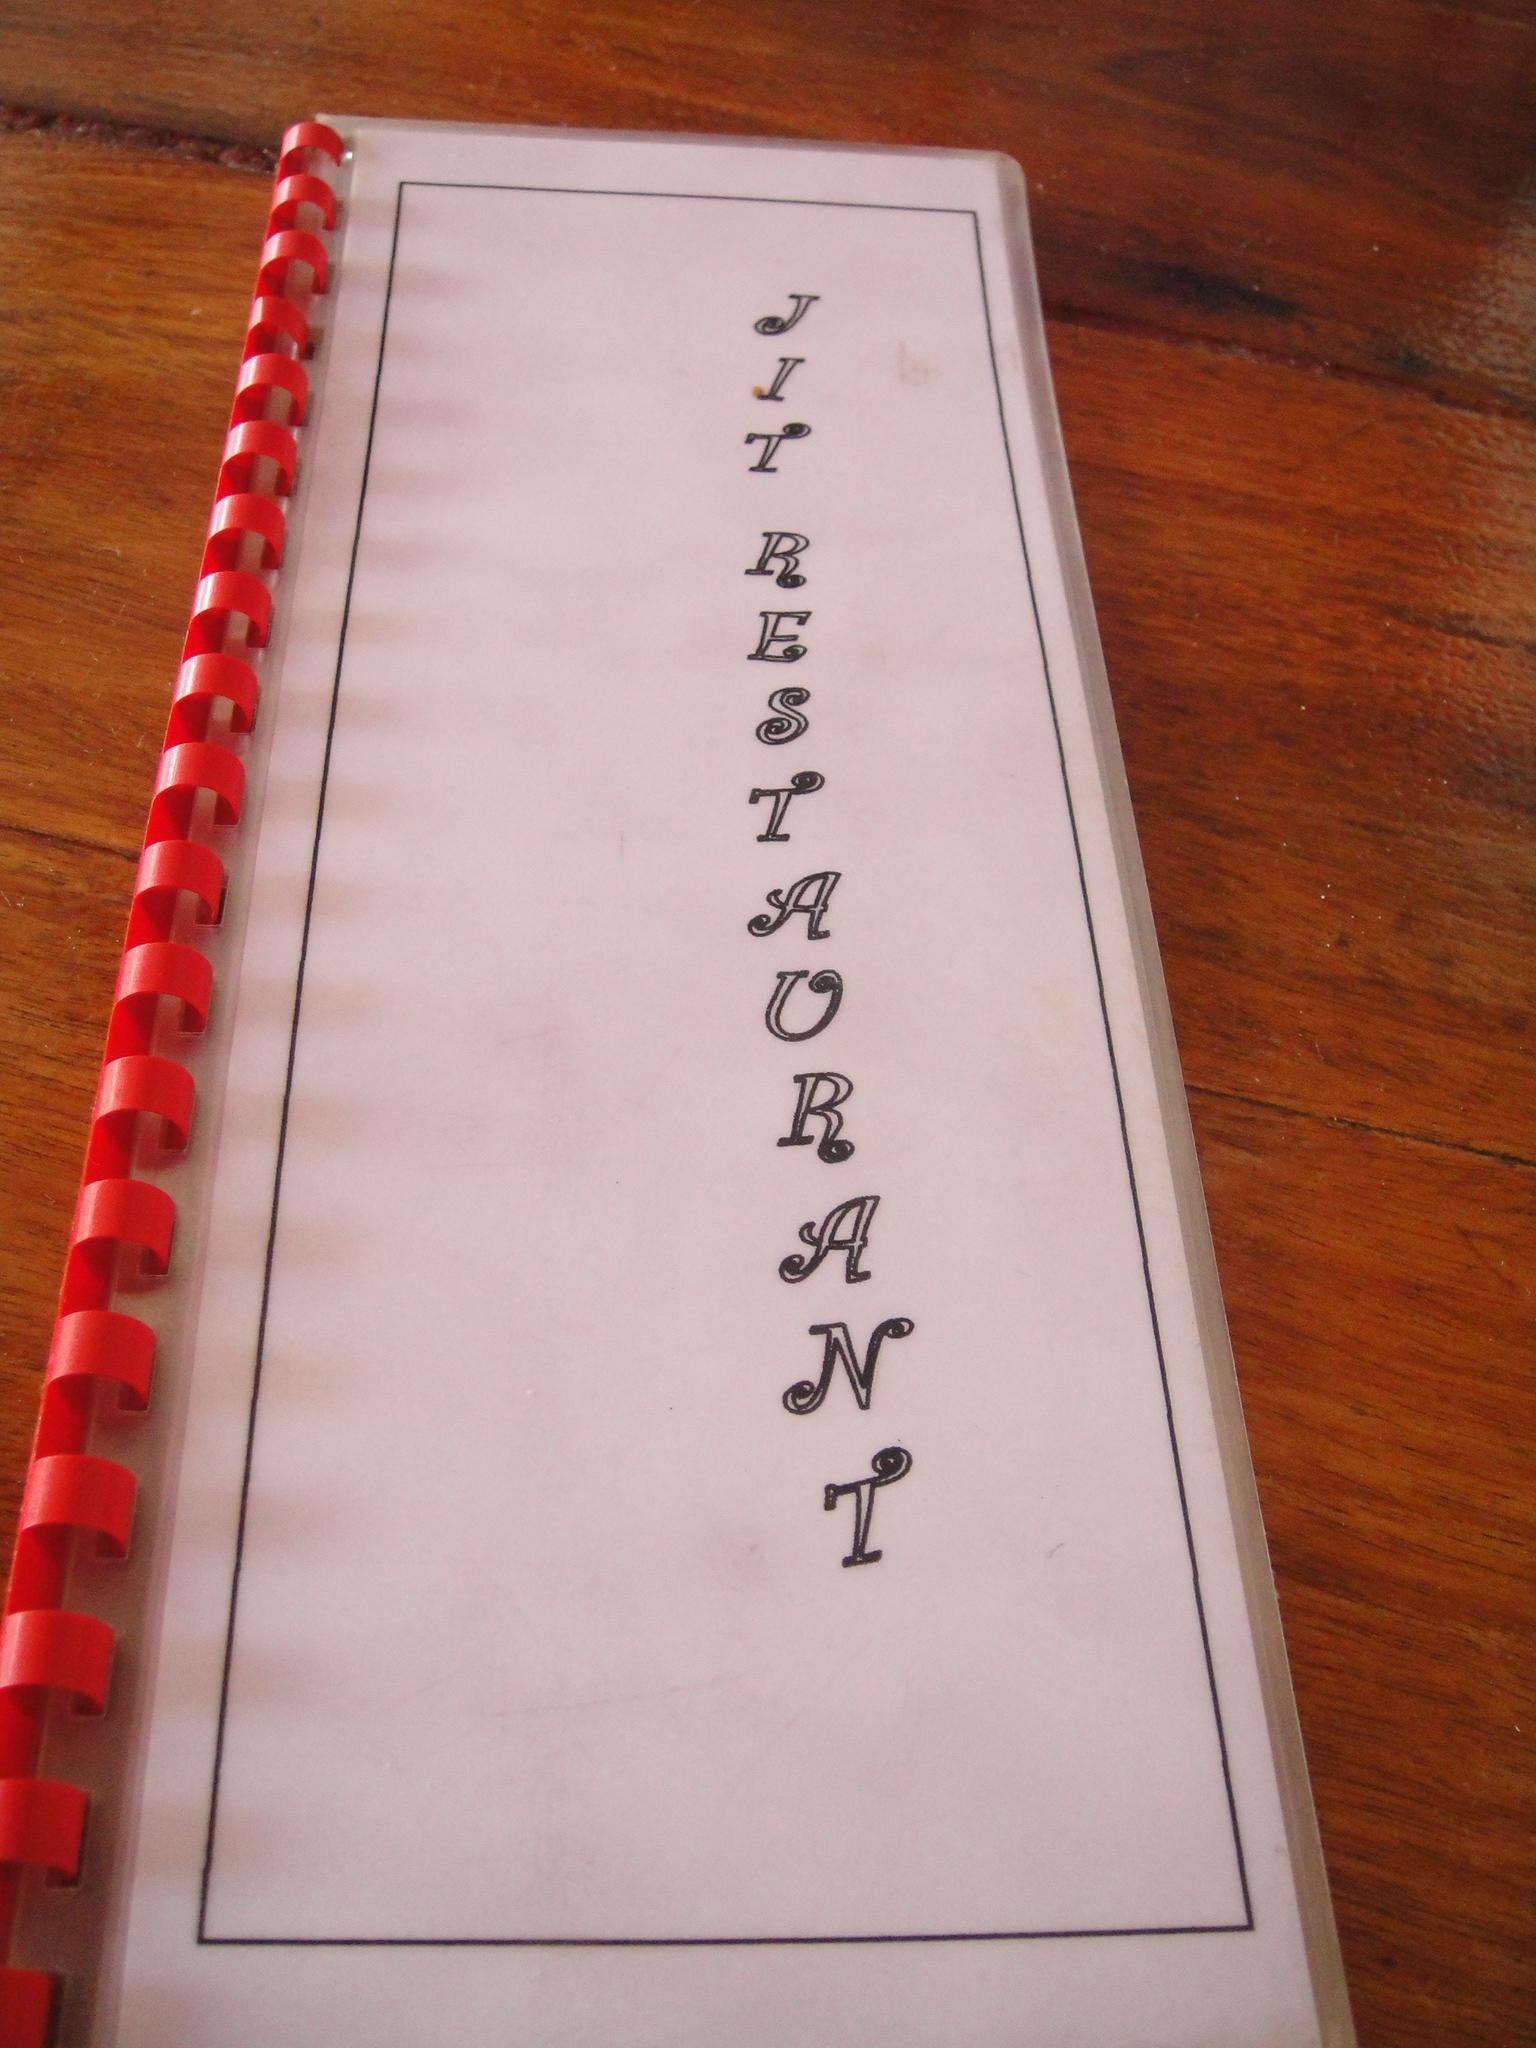 JIT RESTAURANT